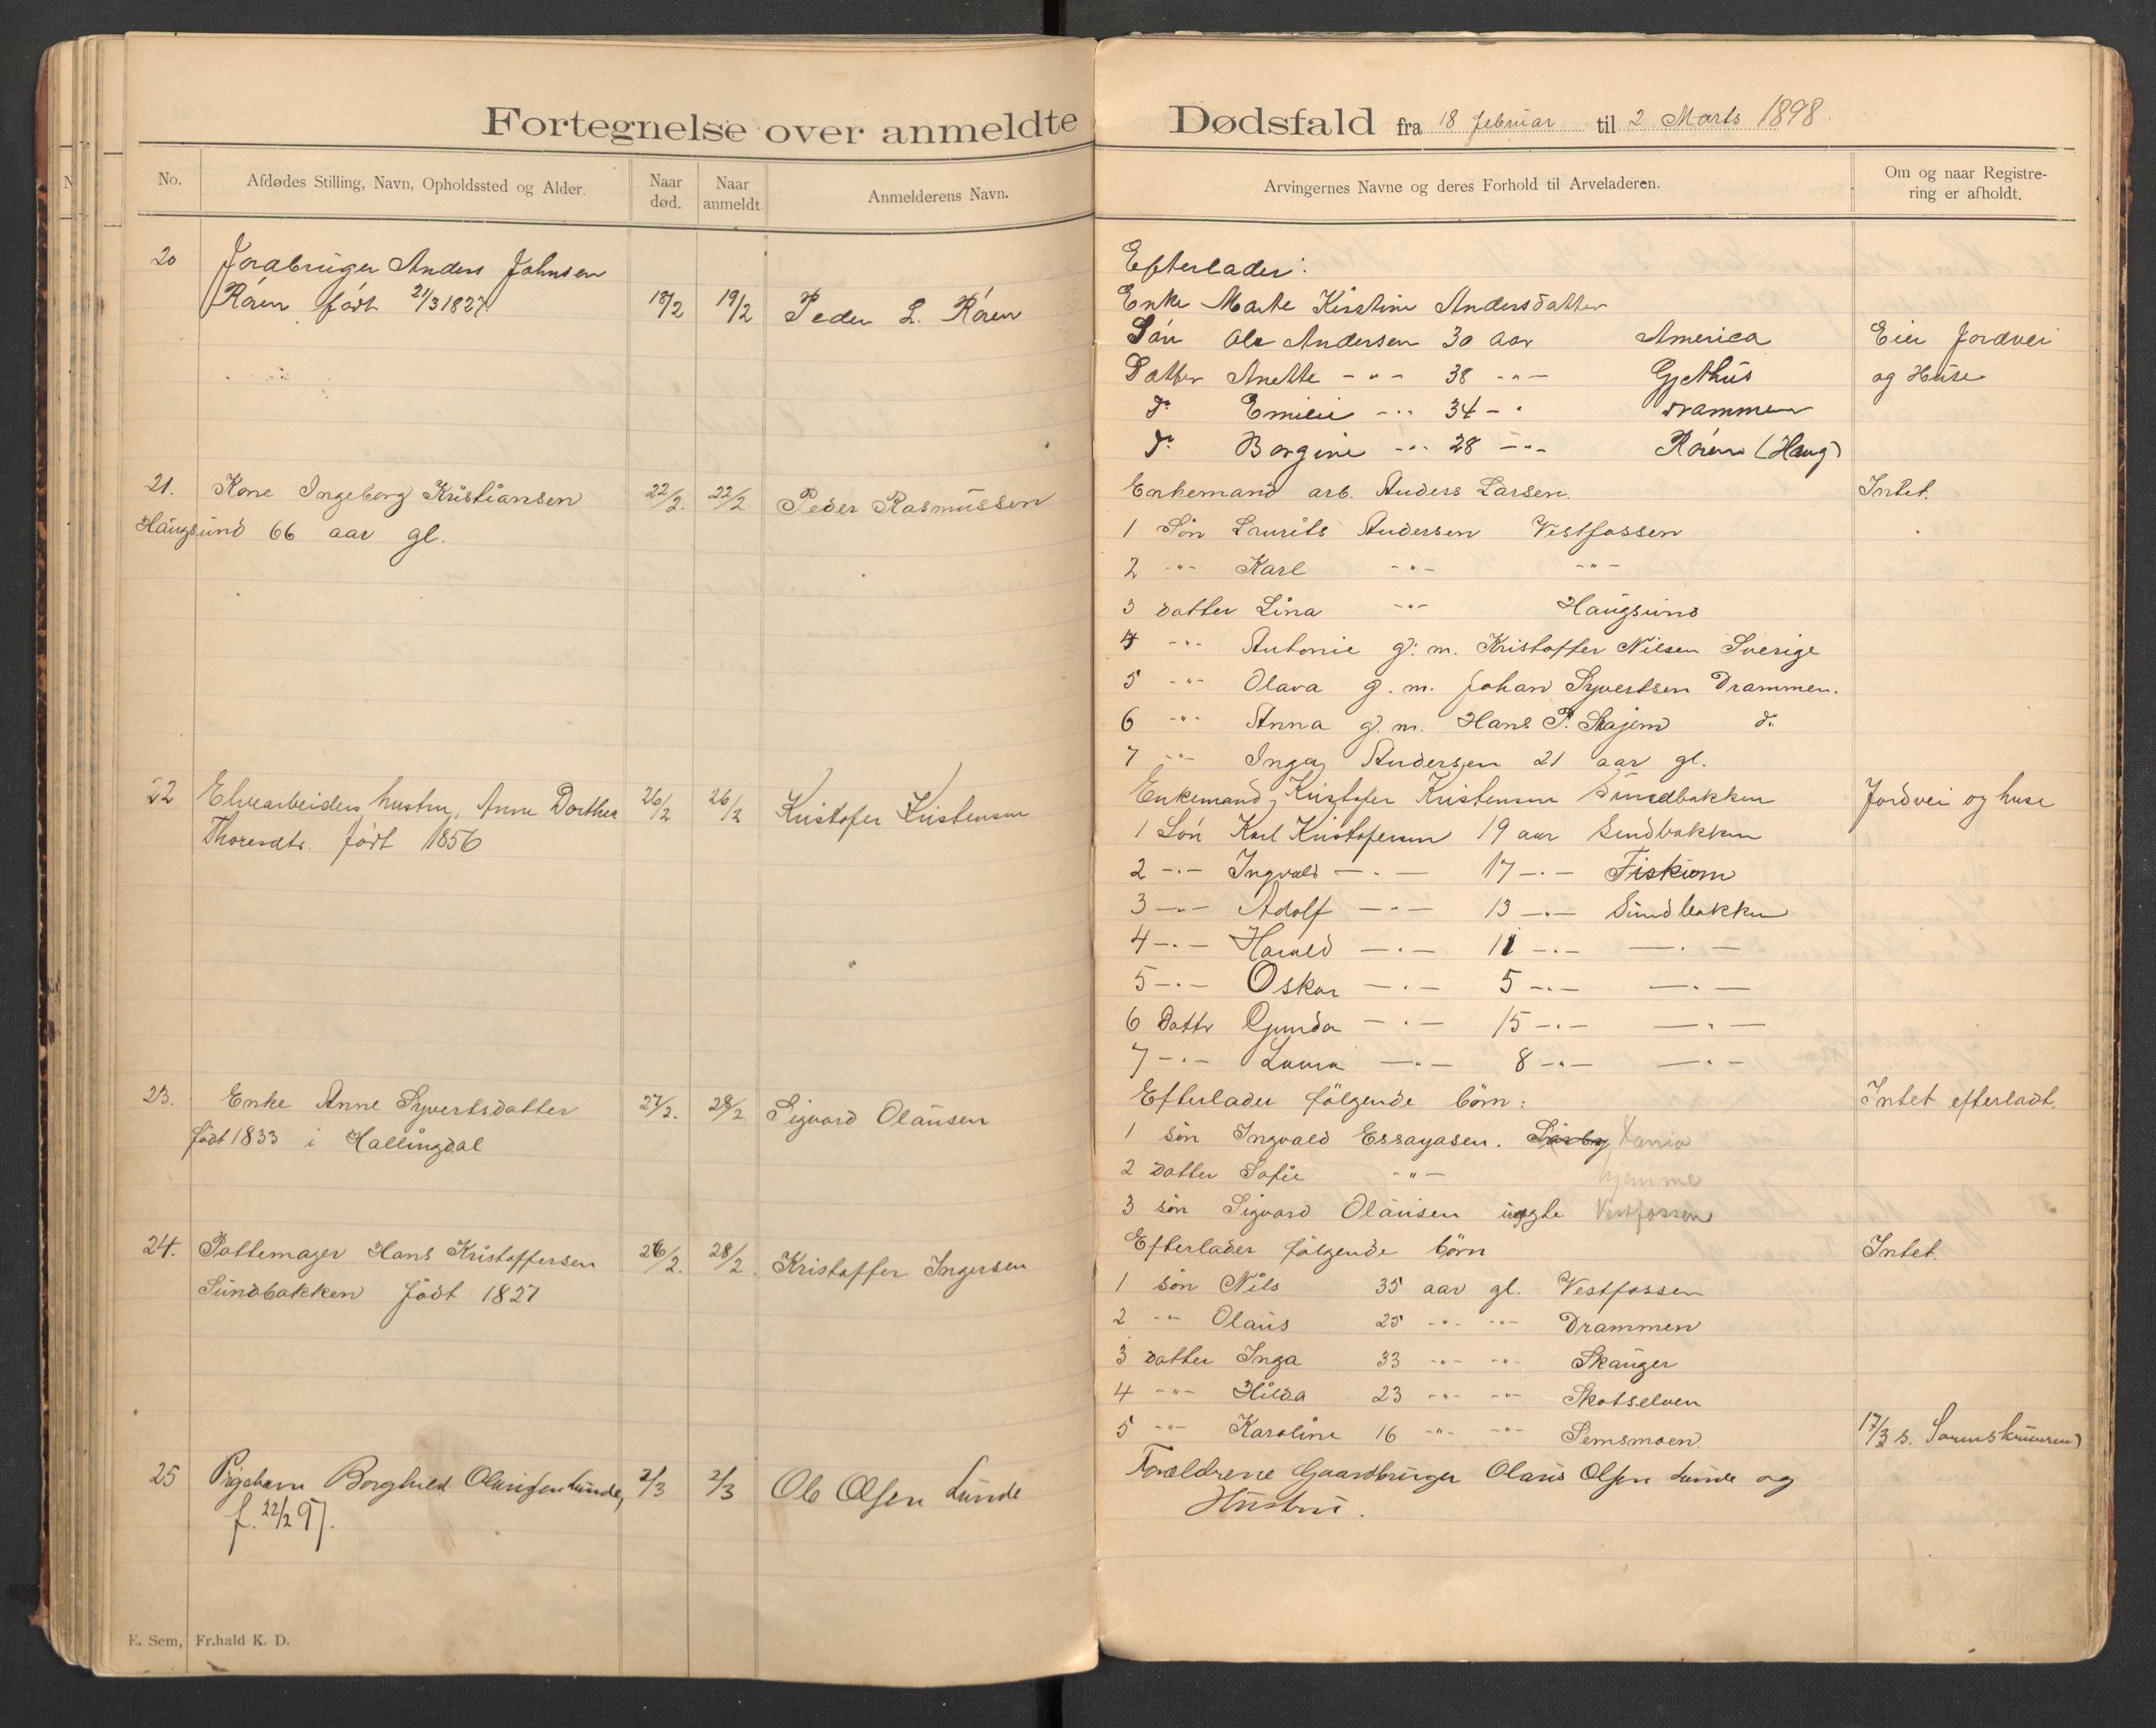 Fortegnelse over anmeldte Dødsfald fra 18 februar til 2 Marts 1898.
No. Afdødes Stilling, Navn, Opholdssted og Alder. Naar død. Naar anmeldt. Anmelderens Navn. Arvingernes Navne og deres Forhold til Arveladeren. Om og naar Registrering er afholdt.
20 Jordbruger Anders Johnsen
Råen født 21/3 1827 18/2 19/2 Peder L.Råen
Efterlader:
Enke Marte Kirstine Andersdatter
Søn Ole Andersen 30 aar America Eier Jordvei
Datter Anette - " - 38 - " - Gjethus og Huse
do Emilie - " - 34 - " Drammen
do Borgine - " - 28 - " - Råen (Haug)
21. Kone Ingeborg Kristiansen 22/2. 22/2 Peder Rasmussen
Haugsund 66 aar gl.
Enkemand arb. Anders Larsen. Intet.
1 Søn Laurits Andersen Vestfossen
2 - " - Karl - " - - " -
3 datter Lina - " - Haugsund
4 - " - Antonie g. m. Kristoffer Nilsen Sverige
5 - " - Olava g. m. Johan Syvertsen Drammen.
6 - " - Anna g. m. Hans P. Skajem do
7 - " - Inga Andersen 21 aar gl.
22 Elvearbeiders hustru, Anne Dorthea 26/2 26/2 Kristofer Kristensen
Thoresdtr. født 1856
Enkemand, Kristofer Kristensen Sundbakken Jordvei og huse
1 Søn Karl Kristofersen 19 aar Sundbakken
2 - " - Ingvald - " - 17 - " - Fiskum
3 - " - Adolf - " - 13 - " - Sundbakken
4 - " - Harald - " - 11 - " - - " -
5 - " - Oskar - " - 5 - " - - " -
6 Dattr Gunda - " - 15 - " - - " -
7 - " - Laura - " - 8 - " - - " -
23. Enke Anne Syvertsdatter 27/2. 28/2. Sigvard Olausen
født 1833 i Hallingdal
Efterlader følgende børn: Intet efterladt.
1 søn Ingvald Essayasen.
2 datter Sofie - " - hjemme
3 søn Sigvard Olausen uægte Vestfossen
24. Pottemager Hans Kristoffersen 26/2. 28/2. Kristoffer Ingersen
Sundbakken født 1827
Efterlader følgende børn Intet.
1 søn Nils 35 aar gl. Vestfossen
2 - " - Olaus 25 - " - - " - Drammen
3 datter Inga 33 - " - - " - Skauger
4 - " - Hilda 23 - " - - " - Skotselven
5 - " - Karoline 16 - " - - " - Semsmoen.
17/3 s. Sorenskriveren
25 Pigebarn Borghild Olausen Lunde, 2/3 2/3 Ole Olsen Lunde
f. 22/2 97.
Forældrene Gaardbruger Olaus Olsen Lunde og
Hustru.
E. Sem, Fr.hald K. D.